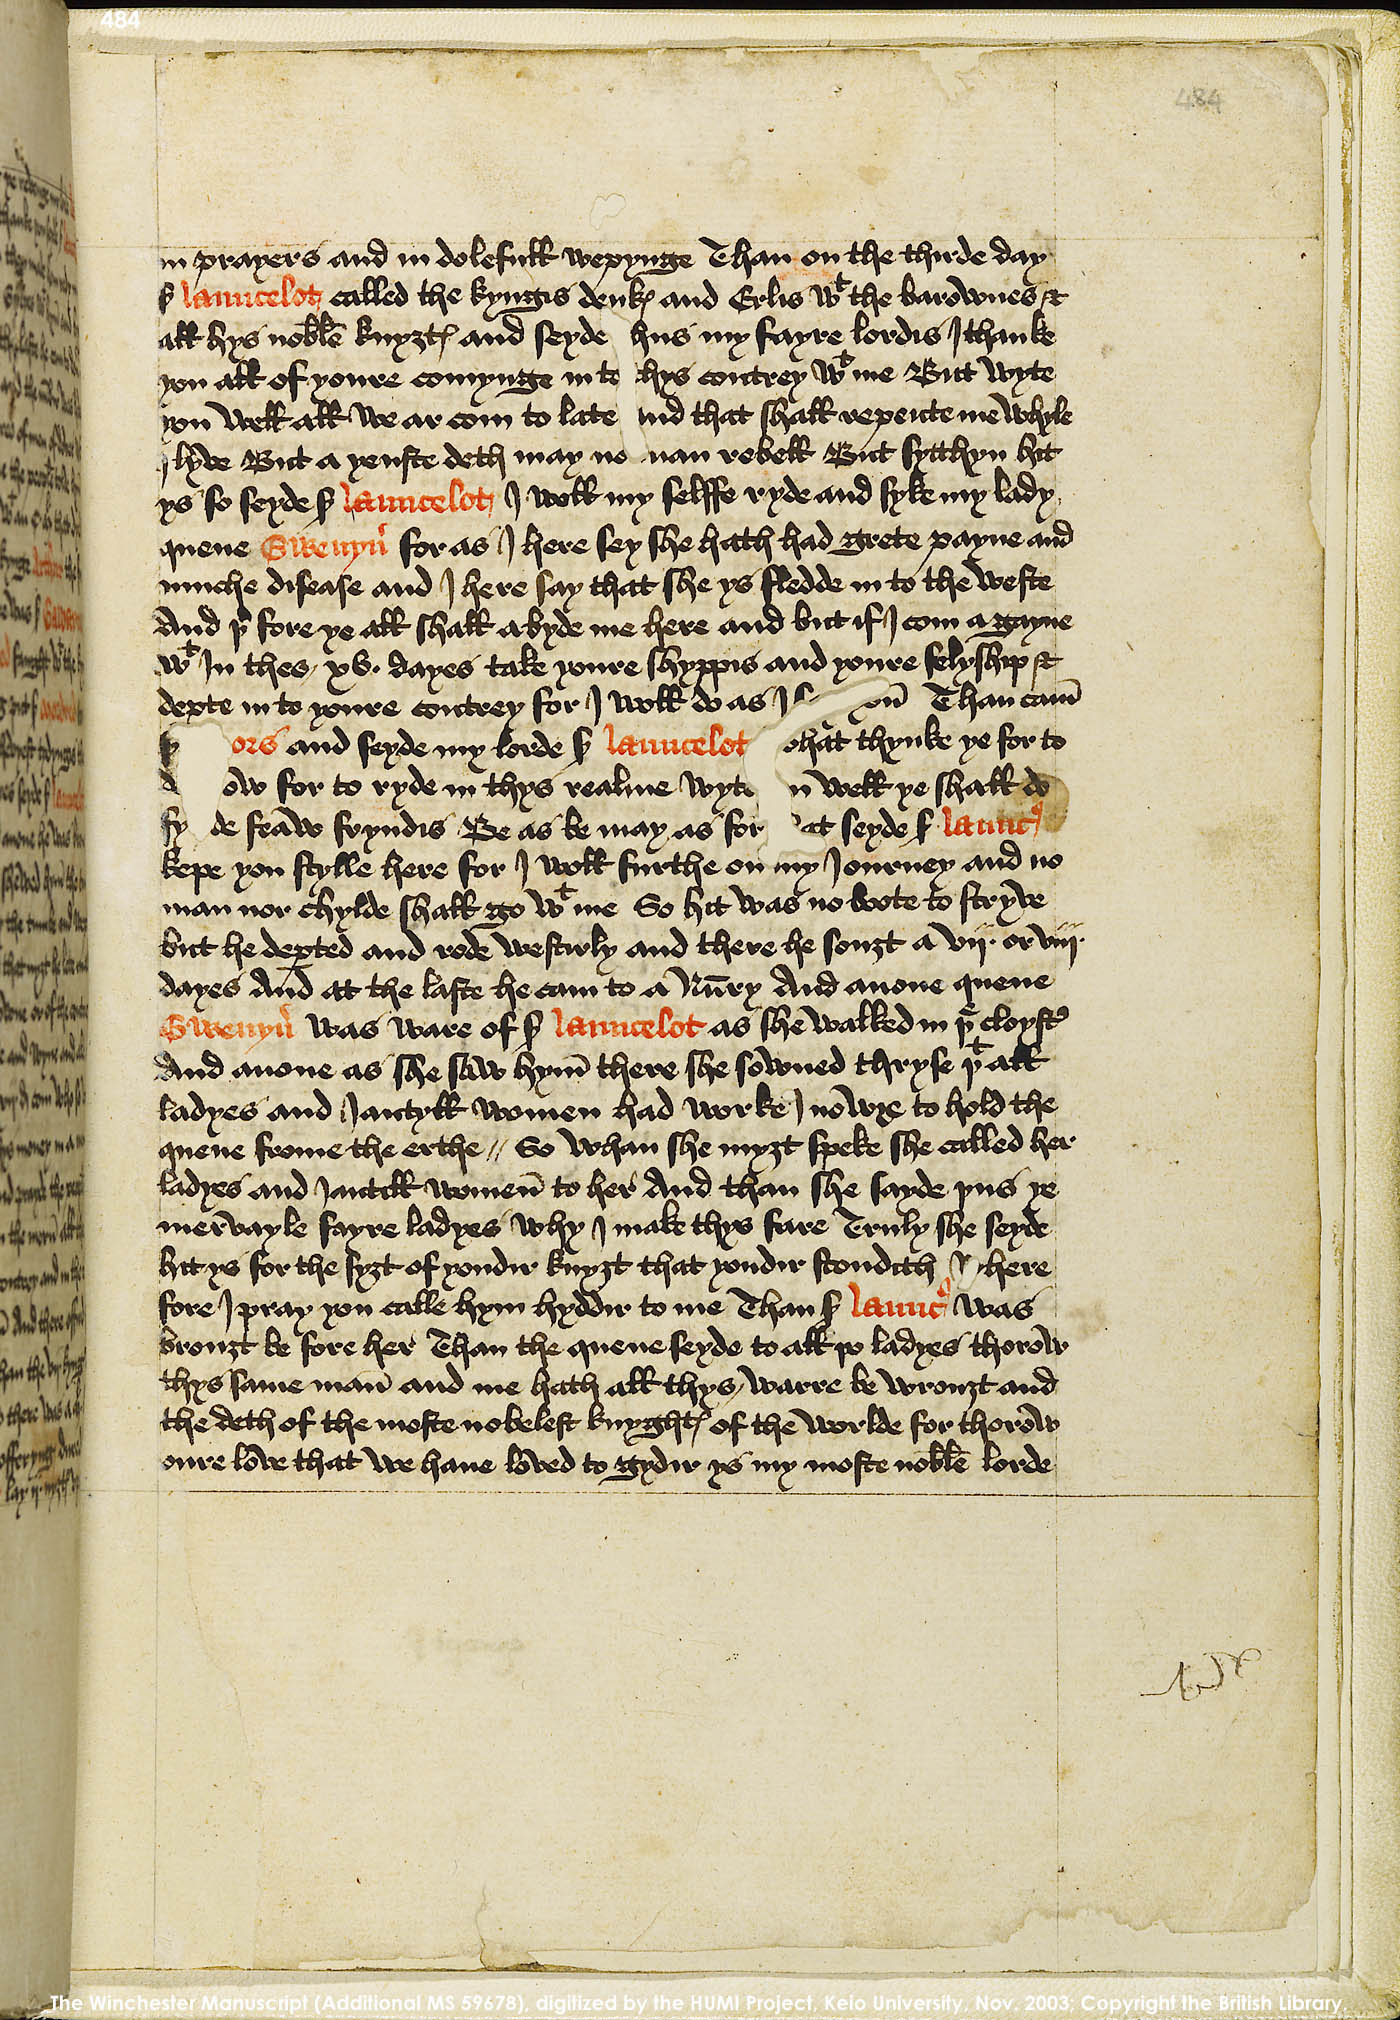 484
484
in prayers and in dolefull wepynge Than on the thirde day
sͬ launcelot called the kyngis deukꝭ and Erlis wͭ the barownes &
all hys noble knyȝtꝭ and seyde hus my fayre lordis I thanke
you all of youre comynge in to thys contrey wͭ me But wyte
you well all we ar com to late nd that shall repente me whyle
I lyve But a yenste deth may no man rebell But sytthyn hit
ys so seyde sͬ launcelot I woll my selffe ryde and syke my lady
quene Gwenyũ for as I here sey she hath had grete payne and
muche disease and I here say that she ys fledde in to the weste
And þͬ fore ye all shall a byde me here and but if I com a gayne
wͭ In thes xv. dayes take youre shyppis and youre felyship &
deꝑte in to youre contrey for I woll do as I s you Than cam̃
sͬ ors and seyde my lorde sͬ launcelot what thynke ye for to
d ow for to ryde in thys realme wyte u well ye shall do
fy de feaw fryndis Be as be may as for at seyde sͬ launcꝰ
kepe you stylle here for I woll furthe on my Iourney and no
man nor chylde shall go wͭ me So hit was no boote to stryve
but he deꝑted and rode westirly and there he souȝt a vij. or viij.
dayes And at the laste he cam to a Nũry And anone quene
Gwenyũ was ware of sͬ launcelot as she walked in þͤ cloystꝰ
And anone as she saw hym̃ there she sowned thryse þͭ all
ladyes and Iantyll women had worke I nowȝe to hold the
quene frome the erthe // So whan she myȝt speke she called her
ladyes and Iantill women̄ to her And than she sayde þus ye
mervayle fayre ladyes why I make thys fare Truly she seyde
hit ys for the syȝt of yondir knyȝt that yondir stondith Where
fore I pray you calle hym hyddir to me Than sͬ launcꝰ was
brouȝt be fore her Than the quene seyde to all þo ladyes thorow
thys same man̄ and me hath all thys warre be wrouȝt and
the deth of the moste nobelest knyghtꝭ of the worlde for thorow
oure love that we have loved to gydir ys my moste noble lorde
The Winchester Manuscript (Additional MS 59678), digitized by the HUMI Project, Keio University, Nov. 2003; Copyright the British Library.